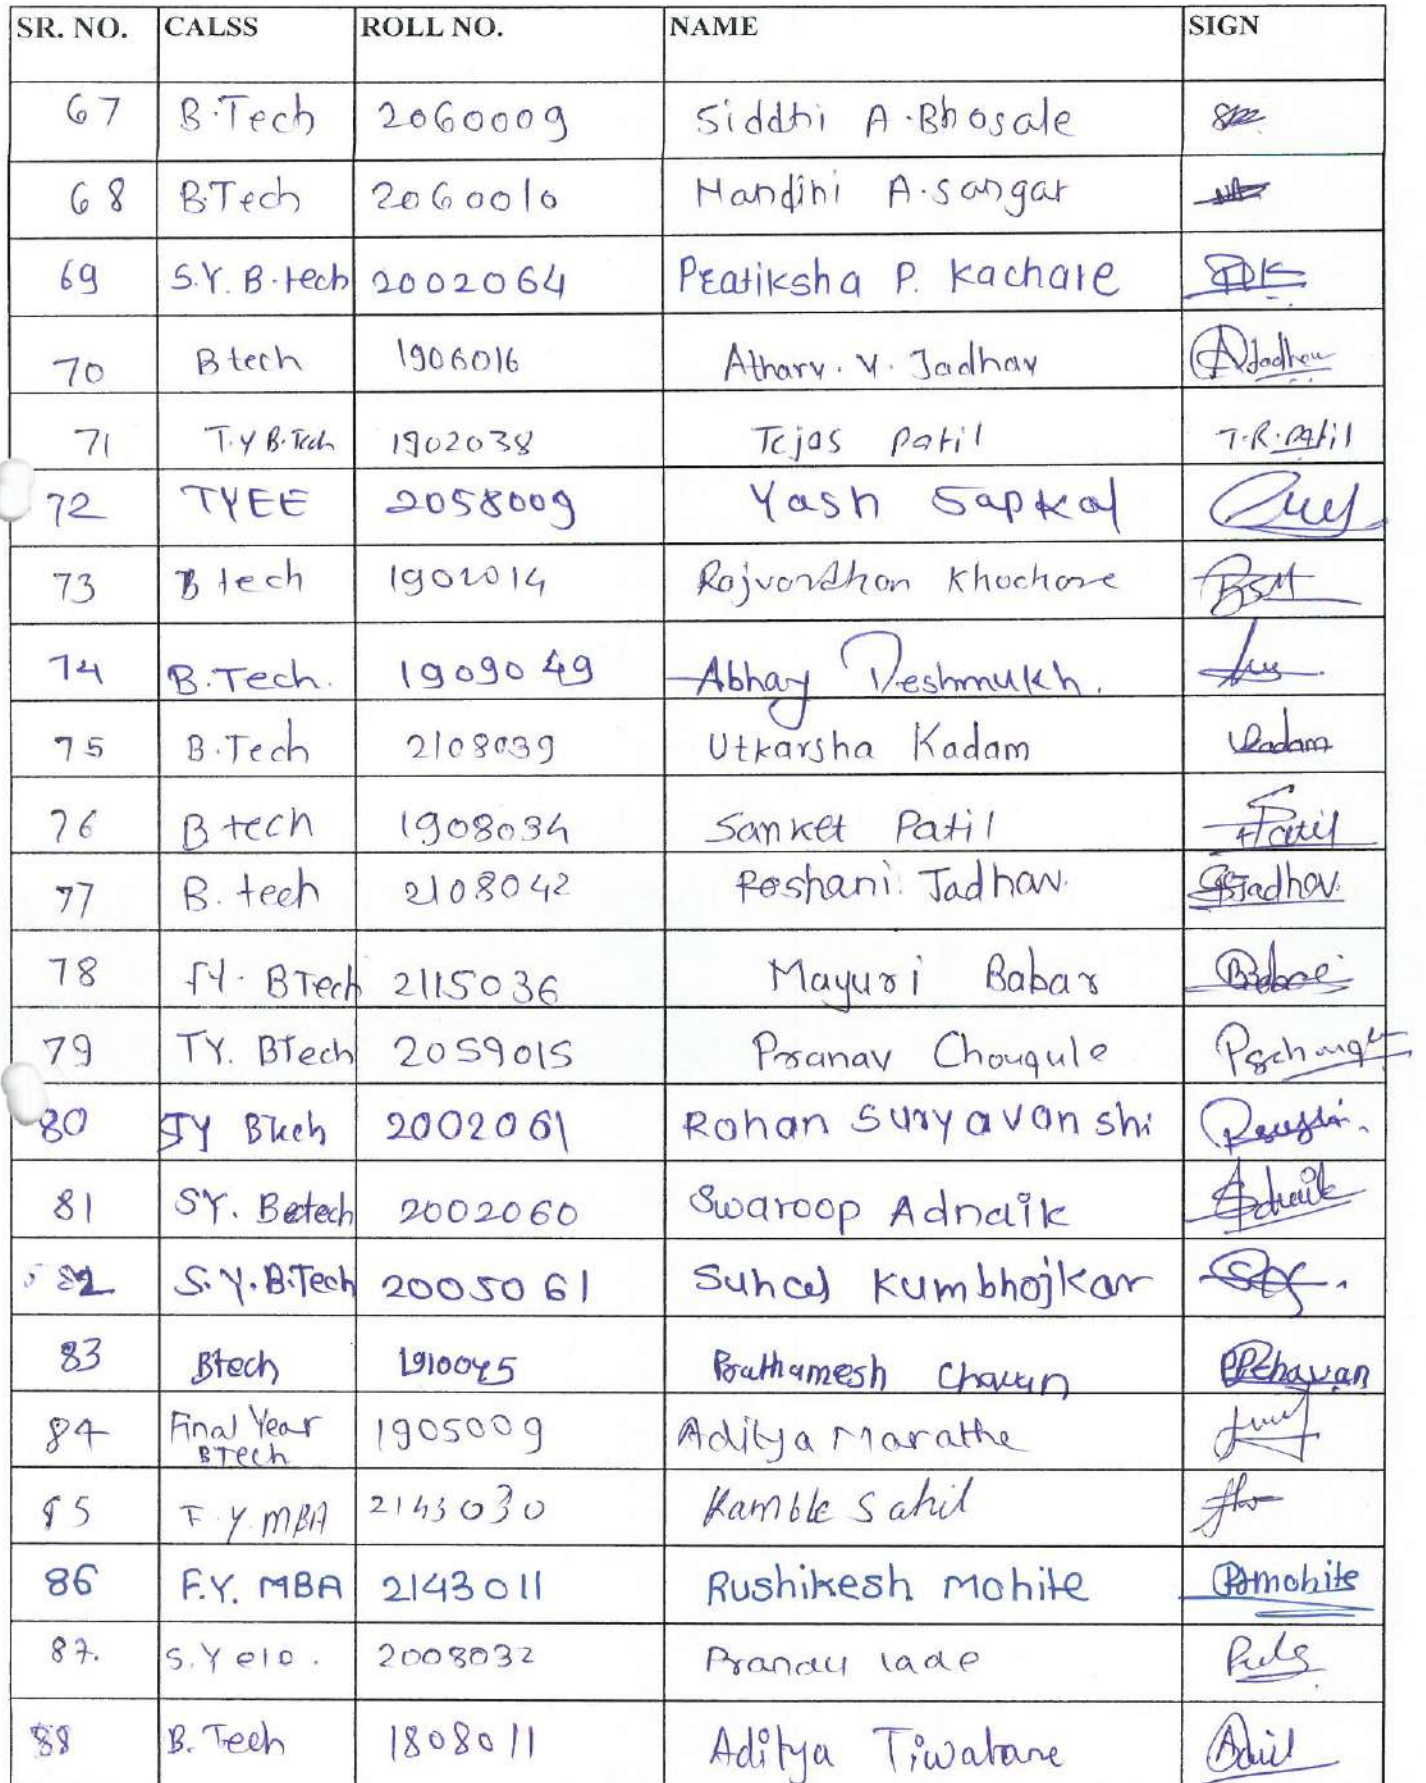 SR. NO. CALSS ROLL NO. NAME SIGN
67 B.Tech 2060009 Siddhi A.Bhosale
68 B.Tech 2060010 Nandini A.sangar
69 S.Y. B.tech 2002064 Pratiksha P. Kachare
70 B tech 1906016 Atharv. V. Jadhav AJadhav
71 T.Y B.Tech 1902038 Tejas Patil T.R.Patil
72 TYEE 2058009 Yash Sapkal
73 B tech 1902014 Rajvardhan Khochare
74 B.Tech. 1909049 Abhay Deshmukh.
75 B.Tech 2108039 Utkarsha Kadam Kadam
76 B tech 1908034 Sanket Patil Patil
77 B. tech 2108042 Roshani Jadhav. Jadhav.
78 TY. BTech 2115036 Mayuri Babar
79 TY. BTech 2059015 Pranav Chougule
80 SY Btech 2002061 Rohan Suryavanshi
81 SY. Betech 2002060 Swaroop Adnaik Adnaik
82 S.Y.B.Tech 2005061 Suhel Kumbhojkar
83 Btech 1910045 Prathamesh Chavan PPChavan
84 Final Year BTech 1905009 Aditya Marathe
85 F.Y. MBA 2143030 Kamble Sahil
86 F.Y. MBA 2143011 Rushikesh Mohite mohite
87. S.Y elo. 2008032 Pranav lade
88 B.Tech 1808011 Aditya Tiwatane